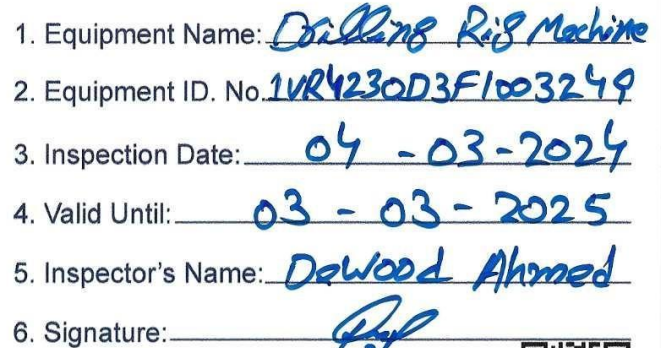 1. Equipment Name: Drilling Rig Machine
2. Equipment ID. No. 1VR4230D3F1003249
3. Inspection Date: 04 - 03 - 2024
4. Valid Until: 03 - 03 - 2025
5. Inspector's Name: Dawood Ahmed
6. Signature: